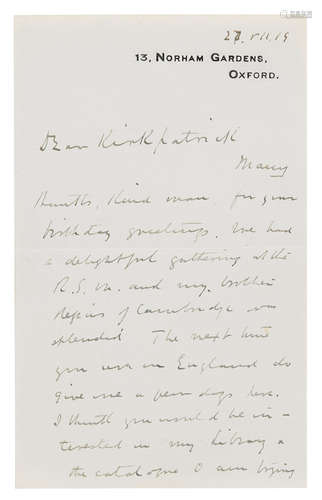 27 VII 19
13, NORHAM GARDENS,
OXFORD.
Dear Kirkpatrick
Many
thanks, kind man, for your
birthday greetings. We had
a delightful gathering at the
R.S.M. and my brother
Regius of Cambridge was
splendid. The next time
you are in England do
give me a few days here.
I think you would be in-
terested in my Library &
the catalogue I am trying